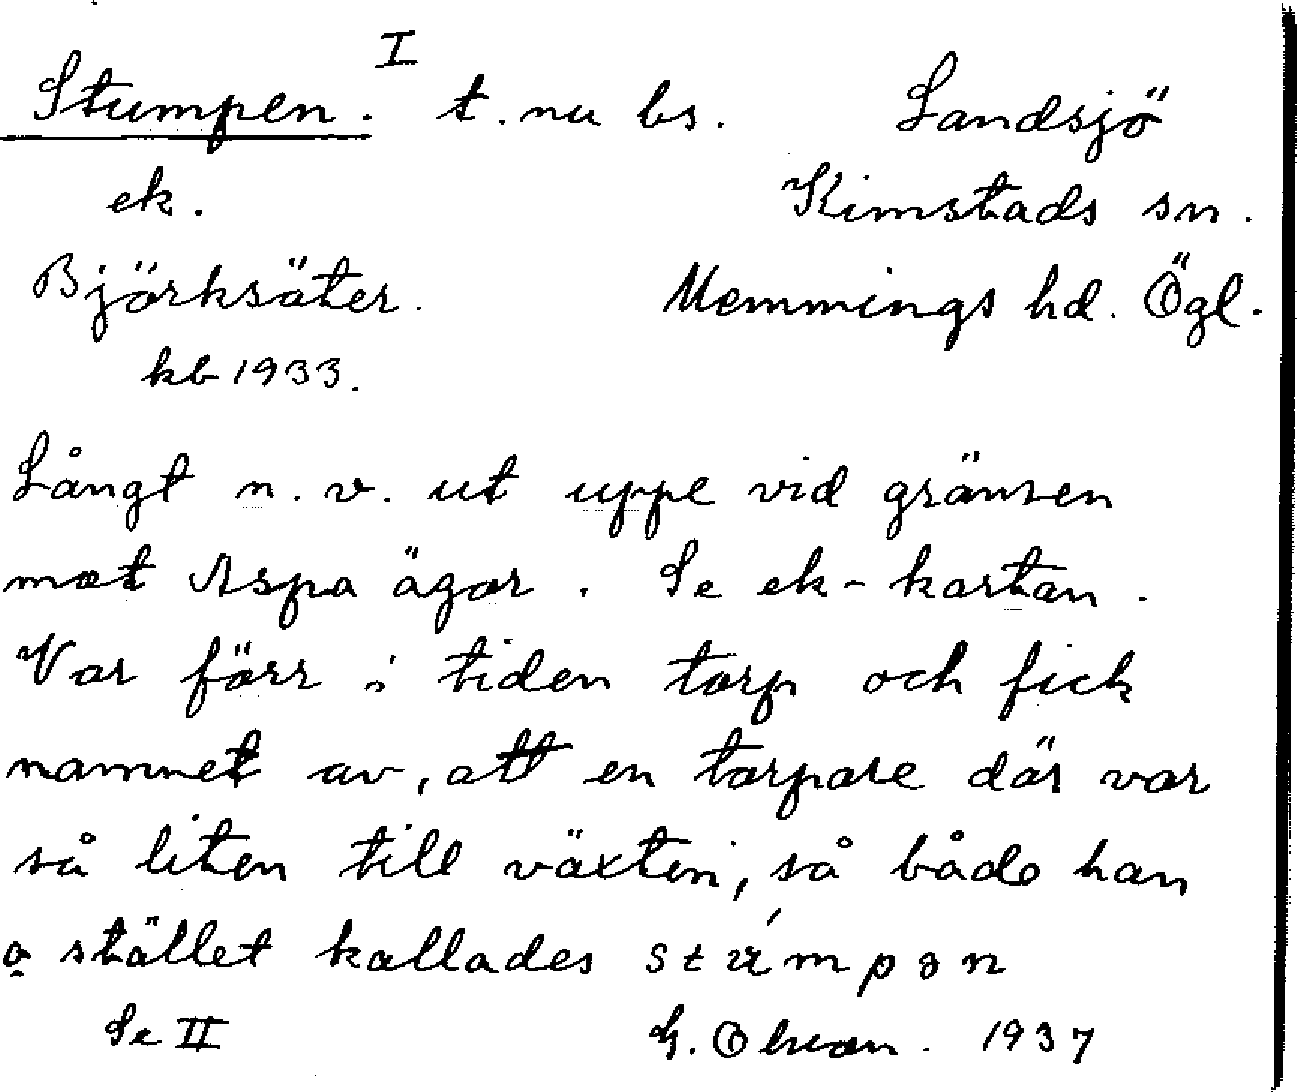 I
Stumpen. t. nu bs. Landsjö
ek. Kimstads sn.
Björksäter. Memmings hd. Ögl.
kb 1933.
Långt n. v. ut uppe vid gränsen
mot Aspa ägor. Se ek-kartan.
Var förr i tiden torp och fick
namnet av, att en torpare där var
så liten till växten, så både han
o stället kallades
Se II G. 1937